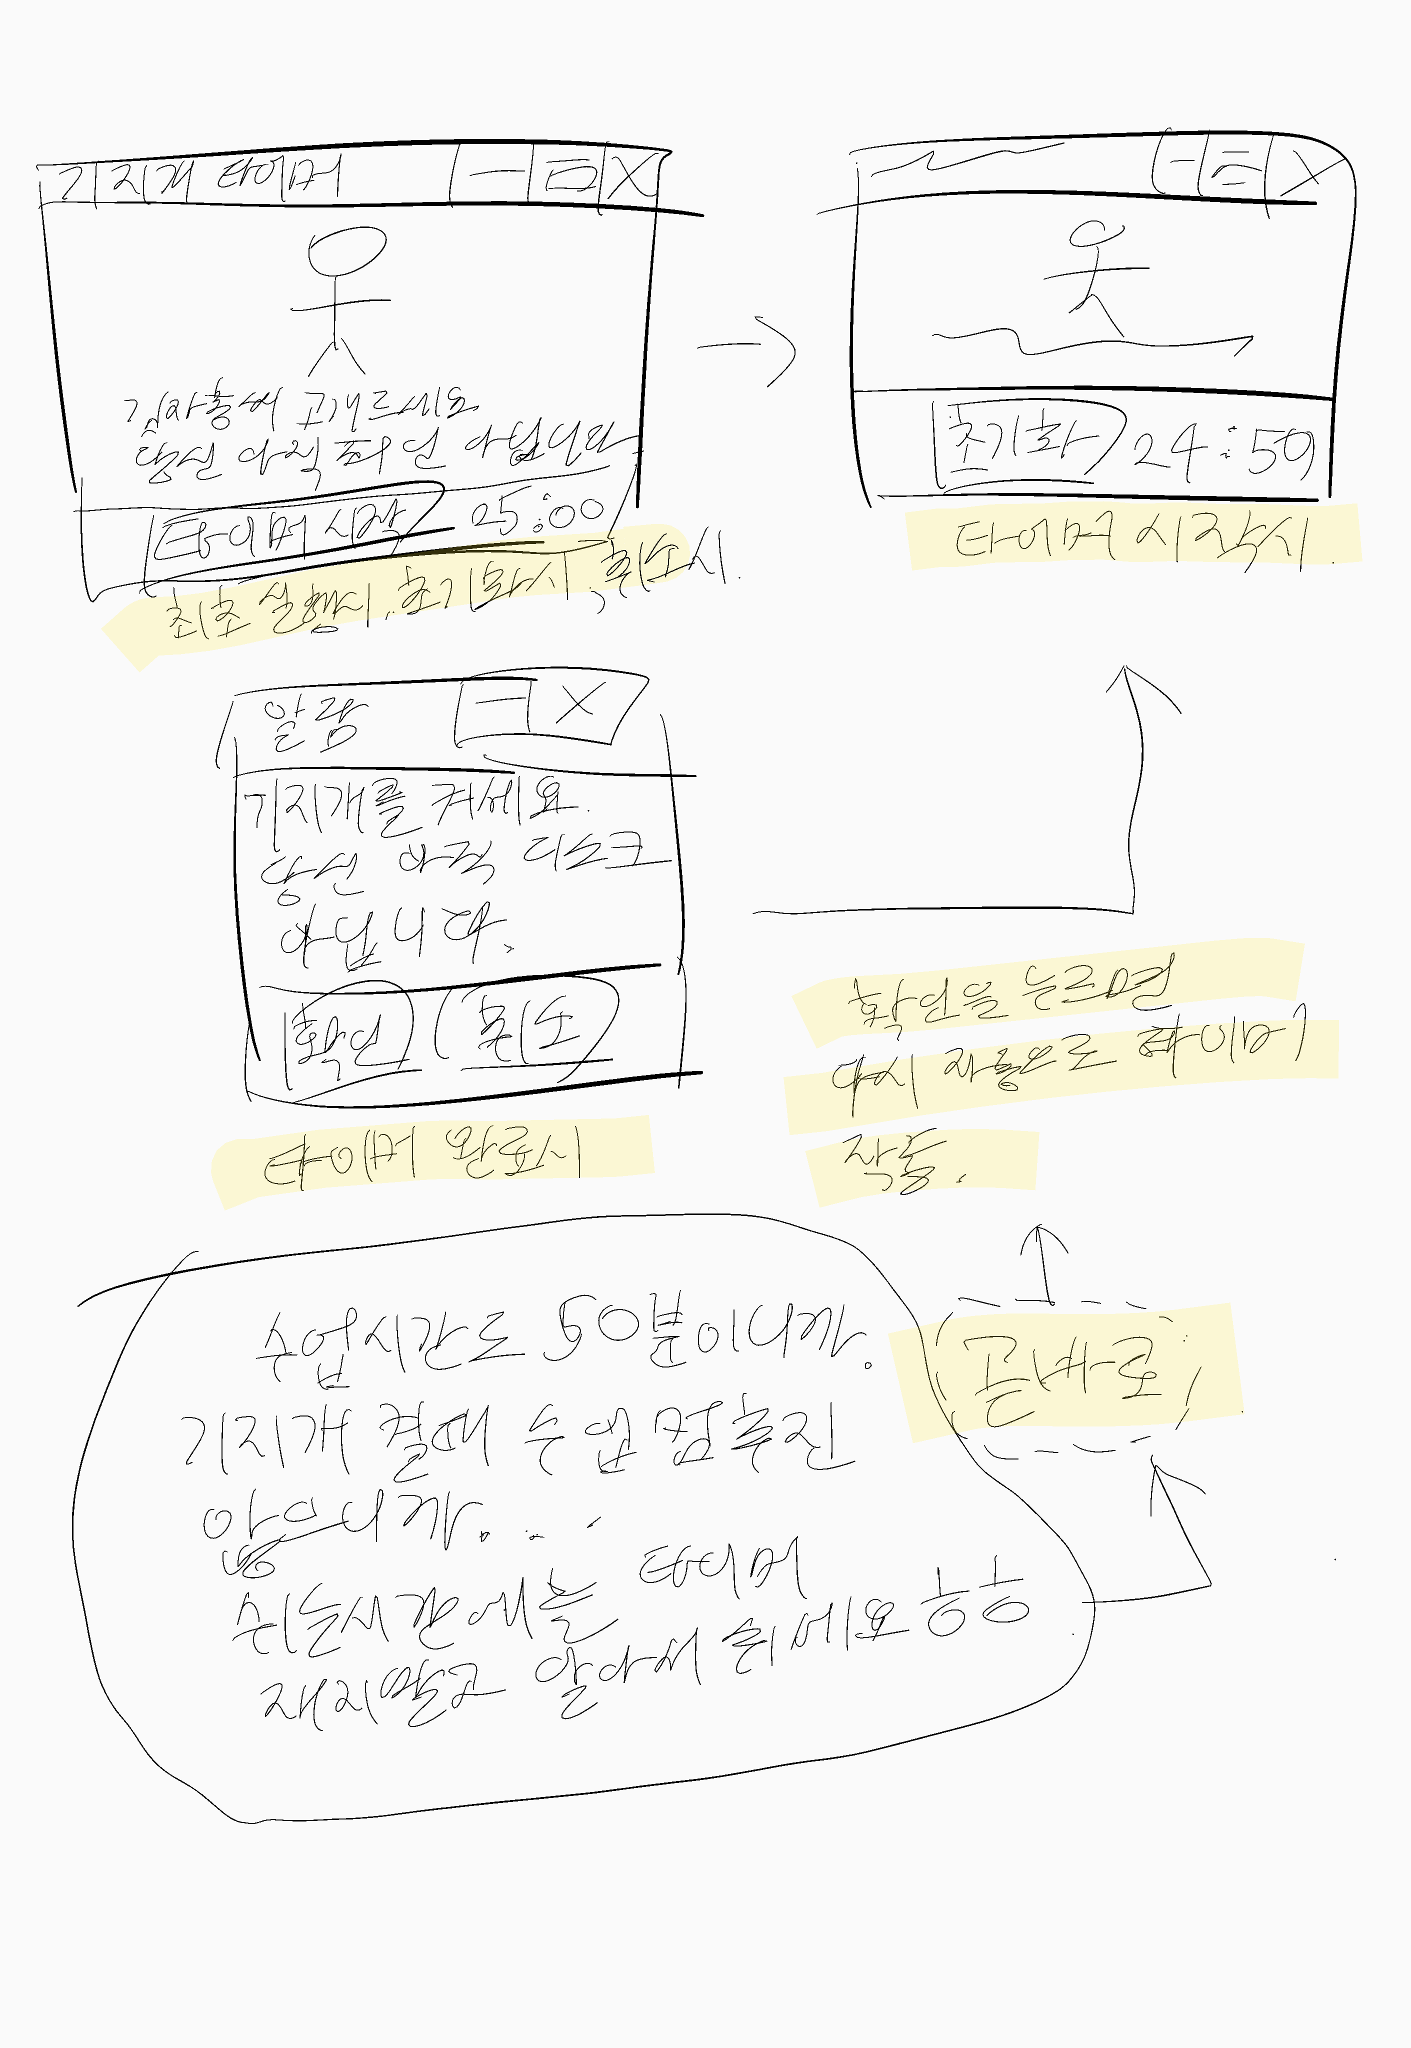 기지개 타이머
김자홍씨 고개르세요
당신 아직 죄인 아닙니다
타이머 시작 25:00
최초 실행시, 초기화시, 취소시.
초기화 24:59
타이머 시작시.
알람
기지개를 켜세요.
당신 아직 디스크
아닙니다.
확인 취소
타이머 완료시
확인을 누르면
다시 자동으로 타이머
작동.
곧바로
수업시간도 50분이니까.
기지개 켤때 수업 멈추진
않으니까...
쉬는시간에는 타이머
재지말고 알아서 쉬세요 ㅎㅎ